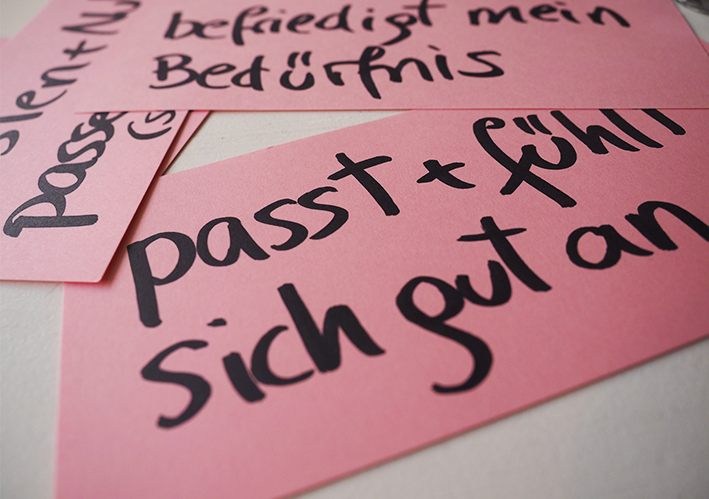 befriedigt mein
Bedürfnis
passt + fühlt
sich gut an